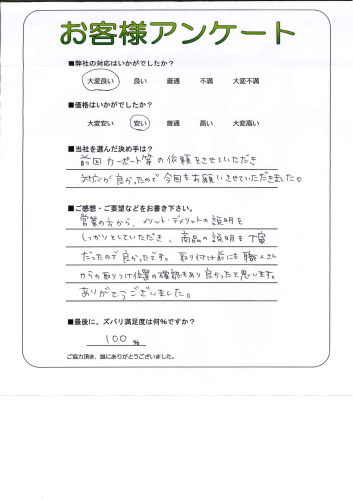 お客様アンケート
■弊社の対応はいかがでしたか？
大変良い 良い 普通 不満 大変不満
■価格はいかがでしたか？
大変安い 安い 普通 高い 大変高い
■当社を選んだ決め手は？
前回カーポート等の依頼をさせていただき
対応が良かったので今回もお願いさせていただきました。
■ご感想・ご要望などをお書き下さい。
営業の方から、メリット・デメリットの説明を
しっかりとしていただき、商品の説明も丁寧
だったので良かったです。取り付け前にも職人さん
からの取りつけ位置の確認もあり良かったと思います。
ありがとうございました。
■最後に、ズバリ満足度は何%ですか？
100 %
ご協力頂き、誠にありがとうございました。